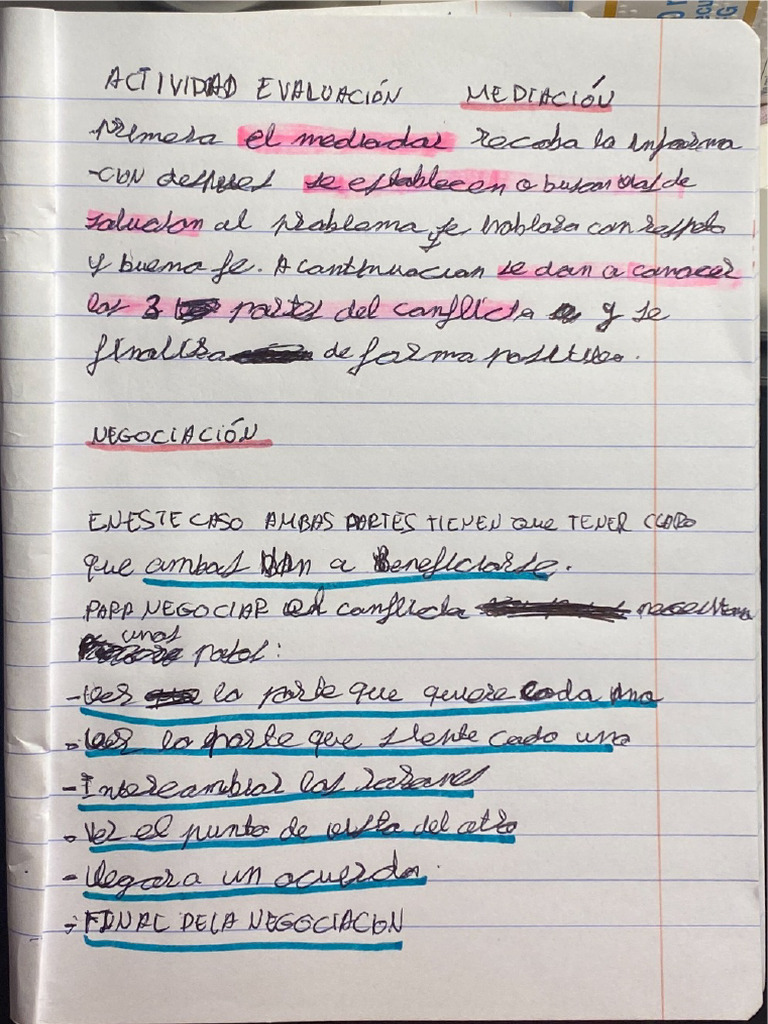 ACTIVIDAD EVALUACIÓN MEDIACIÓN
primero el mediador recaba la informa
-cion despues se establecen o buscan vias de
solucion al problema, se hablara con respeto
y buena fe. A continuacion se dan a conocer
las 3 partes del conflicto y se
finaliza de forma positiva.
NEGOCIACIÓN
EN ESTE CASO AMBAS PARTES TIENEN que TENER CLARO
que ambas van a Beneficiarse.
PARA NEGOCIAR el conflicto necesitamos
unos
pasos:
- Ver la parte que quiere cada uno
- Ver la parte que siente cada uno
- Intercambiar las razones
- Ver el punto de vista del otro
- llegar a un acuerdo.
- FINAL DE LA NEGOCIACION